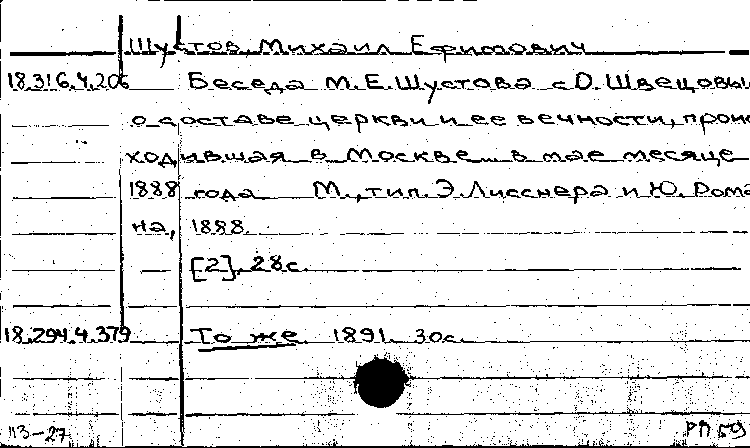 Шустов, Михаил Ефимович
18.316.4.206 Беседа М.Е.Шустова с О. Швецовы
о составе церкви и ее вечности, прои
ходившая в Москве в мае месяце
1888 года М., тип. Э. Лисснера и Ю. Рома
на, 1888.
[2], 28с.
18.294.4.379 То же 1891. 30с.
113-27 РП 59